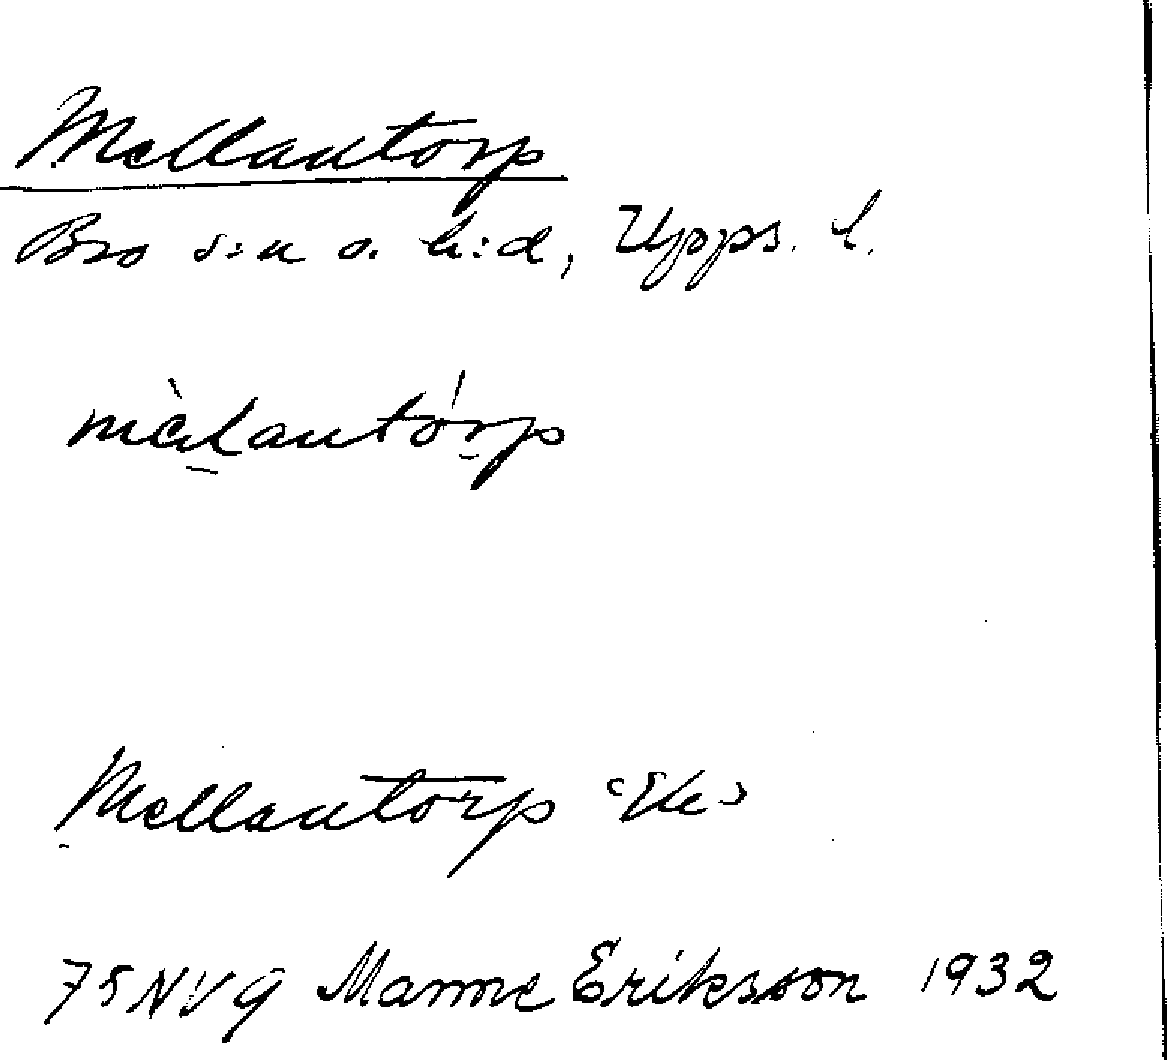 Mellantorp
Bro s:n o. h:d, Upps. l.
mè̀lantórp
Mellantorp
75 NV 9 Manne Eriksson 1932